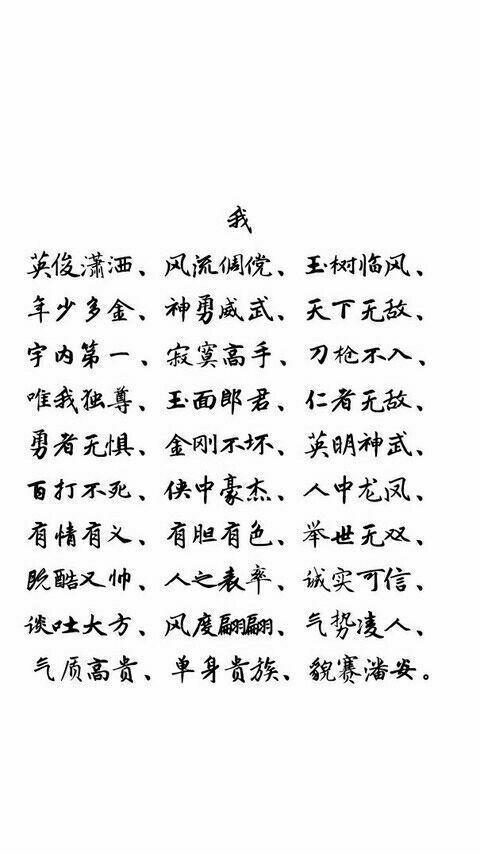 我
英俊潇洒、风流倜傥、玉树临风、
年少多金、神勇威武、天下无敌、
宇内第一、寂寞高手、刀枪不入、
唯我独尊、玉面郎君、仁者无敌、
勇者无惧、金刚不坏、英明神武、
百打不死、侠中豪杰、人中龙凤、
有情有义、有胆有色、举世无双、
既酷又帅、人之表率、诚实可信、
谈吐大方、风度翩翩、气势凌人、
气质高贵、单身贵族、貌赛潘安。